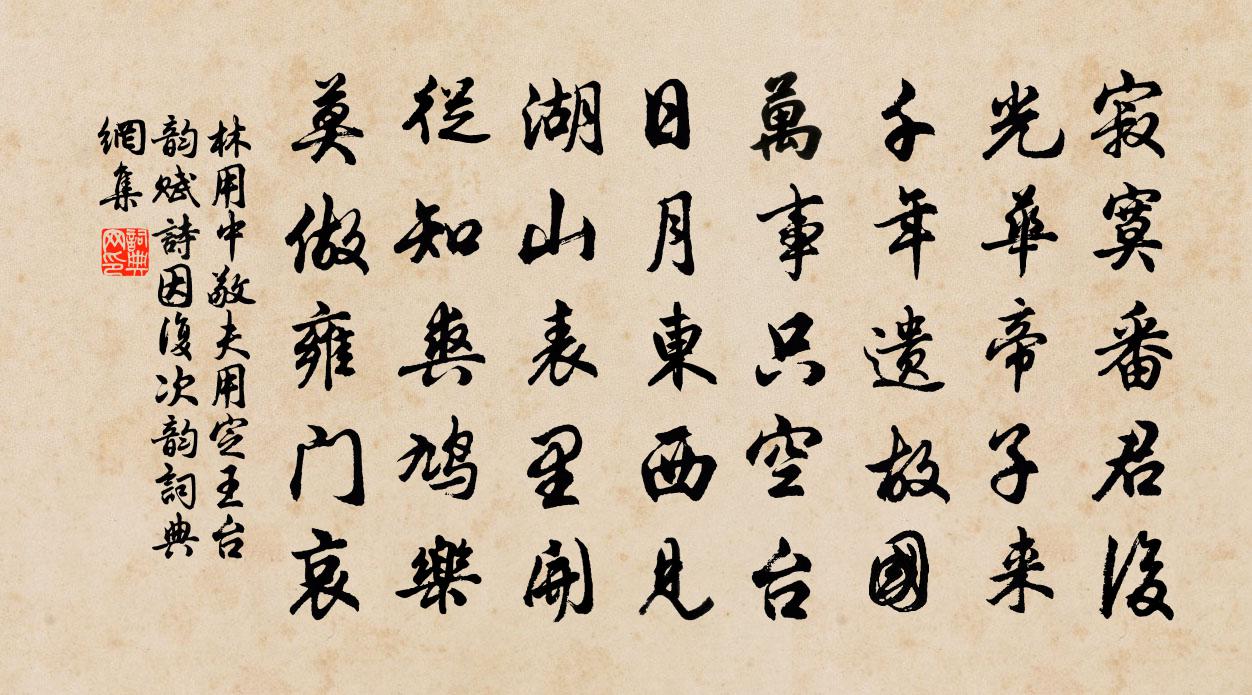 寂寞番君後
光華帝子来
千年遗故國
萬事只空台
日月東西見
湖山表里開
從知爽鳩樂
莫傚雍門哀
林用中敬夫用定王台
韵赋詩因復次韵詞典
網集
詞典網印